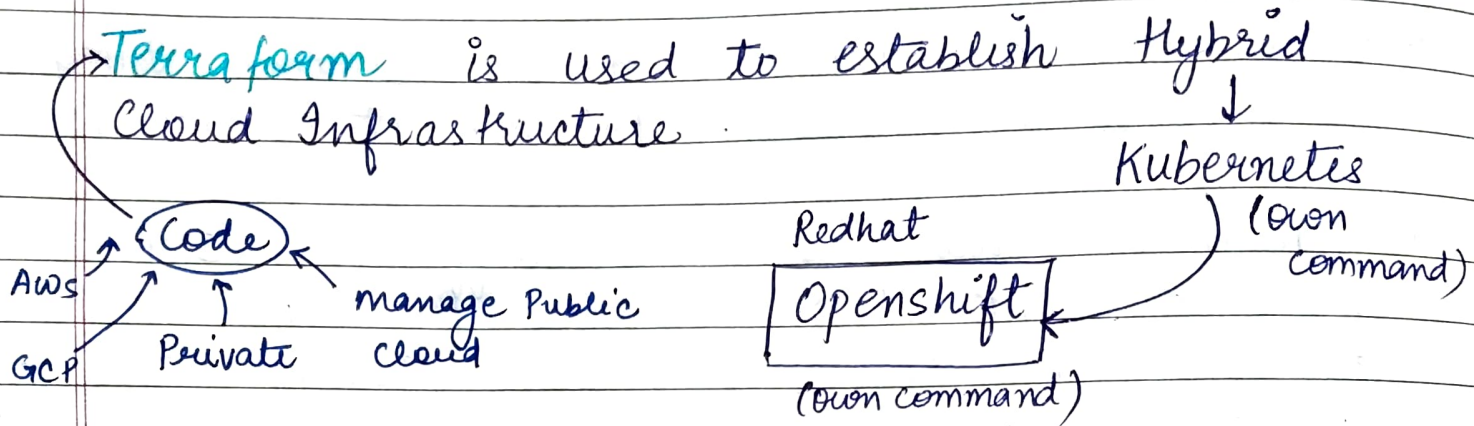 Terraform is used to establish Hybrid
Cloud Infrastructure.
Kubernetis
(own
command)
Code
AWS
GCP
Private
manage Public
cloud
Redhat
Openshift
(own command)